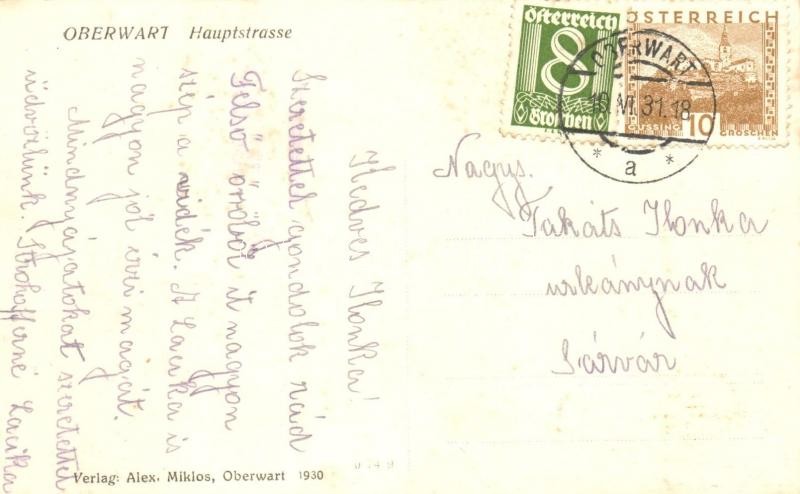 OBERWART Hauptstrasse
Österreich
8
Groschen
ÖSTERREICH
GÜSSING
10
GROSCHEN
OBERWART
19.VI.31.18
* a *
Kedves Ilonka!
Szeretettel gondolok rád
Felső őrölső it nagyon
szép a vidék. A Lacika is
nagyon jól érzi magát.
Mindnyájatokat szeretettel
üdvözlünk. Strohofferné Lacika
Nagys.
Takáts Ilonka
urleánynak
Sárvár
Verlag: Alex. Miklos, Oberwart 1930